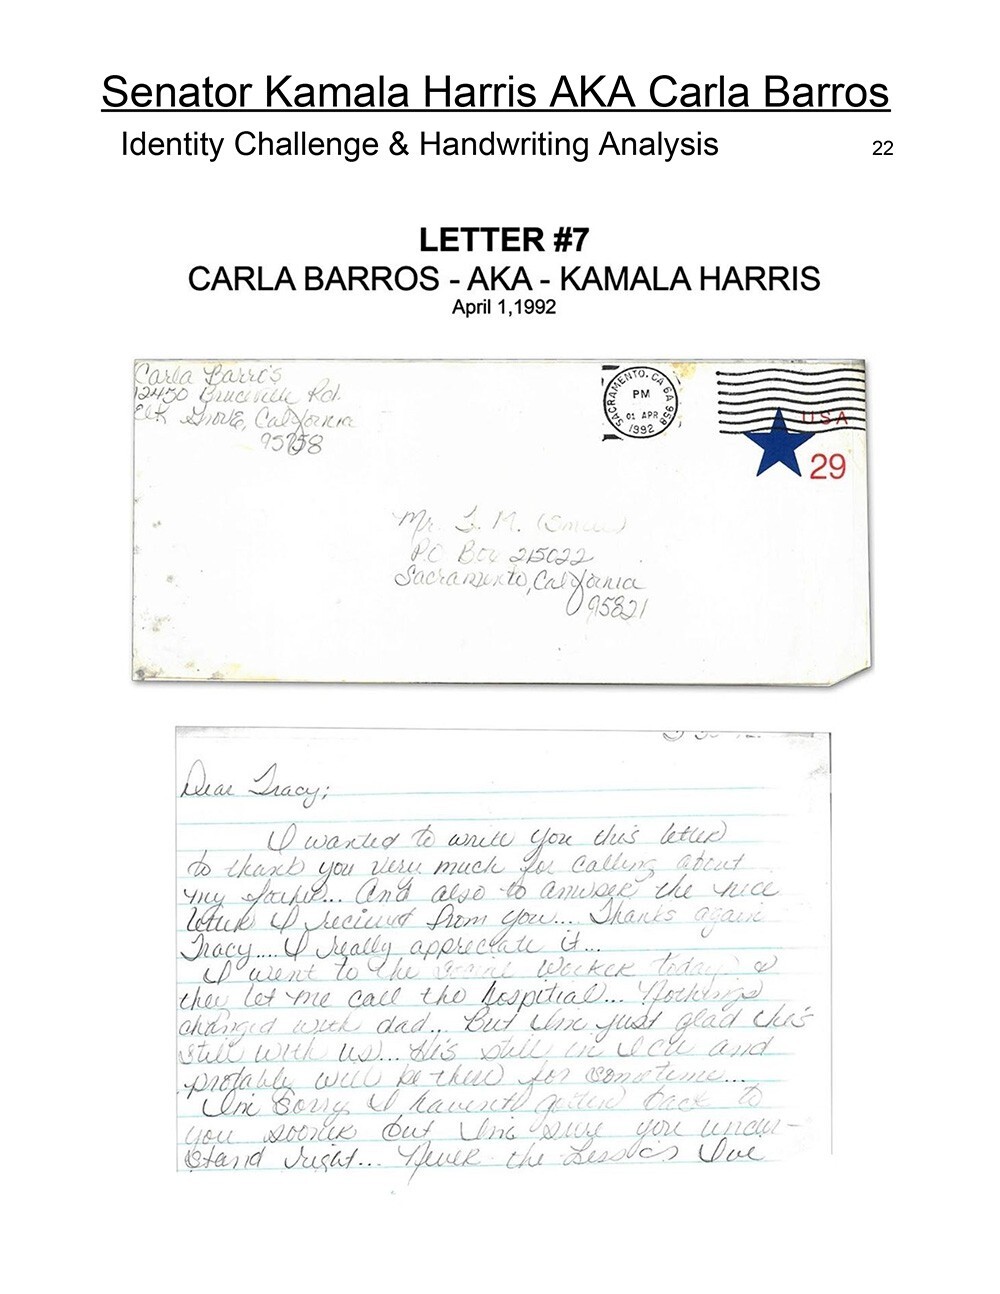 Senator Kamala Harris AKA Carla Barros
Identity Challenge & Handwriting Analysis 22
LETTER #7
CARLA BARROS - AKA - KAMALA HARRIS
April 1,1992
Carla Barros
12450 Bruceville Rd.
Elk Grove, California
95758
SACRAMENTO, CA 958
PM
01 APR
1992
USA
29
Mr. T. M. (Smiles)
P.O Box 215022
Sacramento, California
95821
Dear Tracy;
I wanted to write you this letter
to thank you very much for calling about
my father... And also to answer the nice
letter I recieved from you... Thanks again
Tracy.... I really appreciate it...
I went to the Worker today &
they let me call the hospitial... Nothings
changed with dad... But Im just glad he's
still with us... He's still in Icu and
probably will be there for sometime...
Im Sorry I haven't gotten back to
you sooner but Im sure you under-
stand right... Never the Less Ive